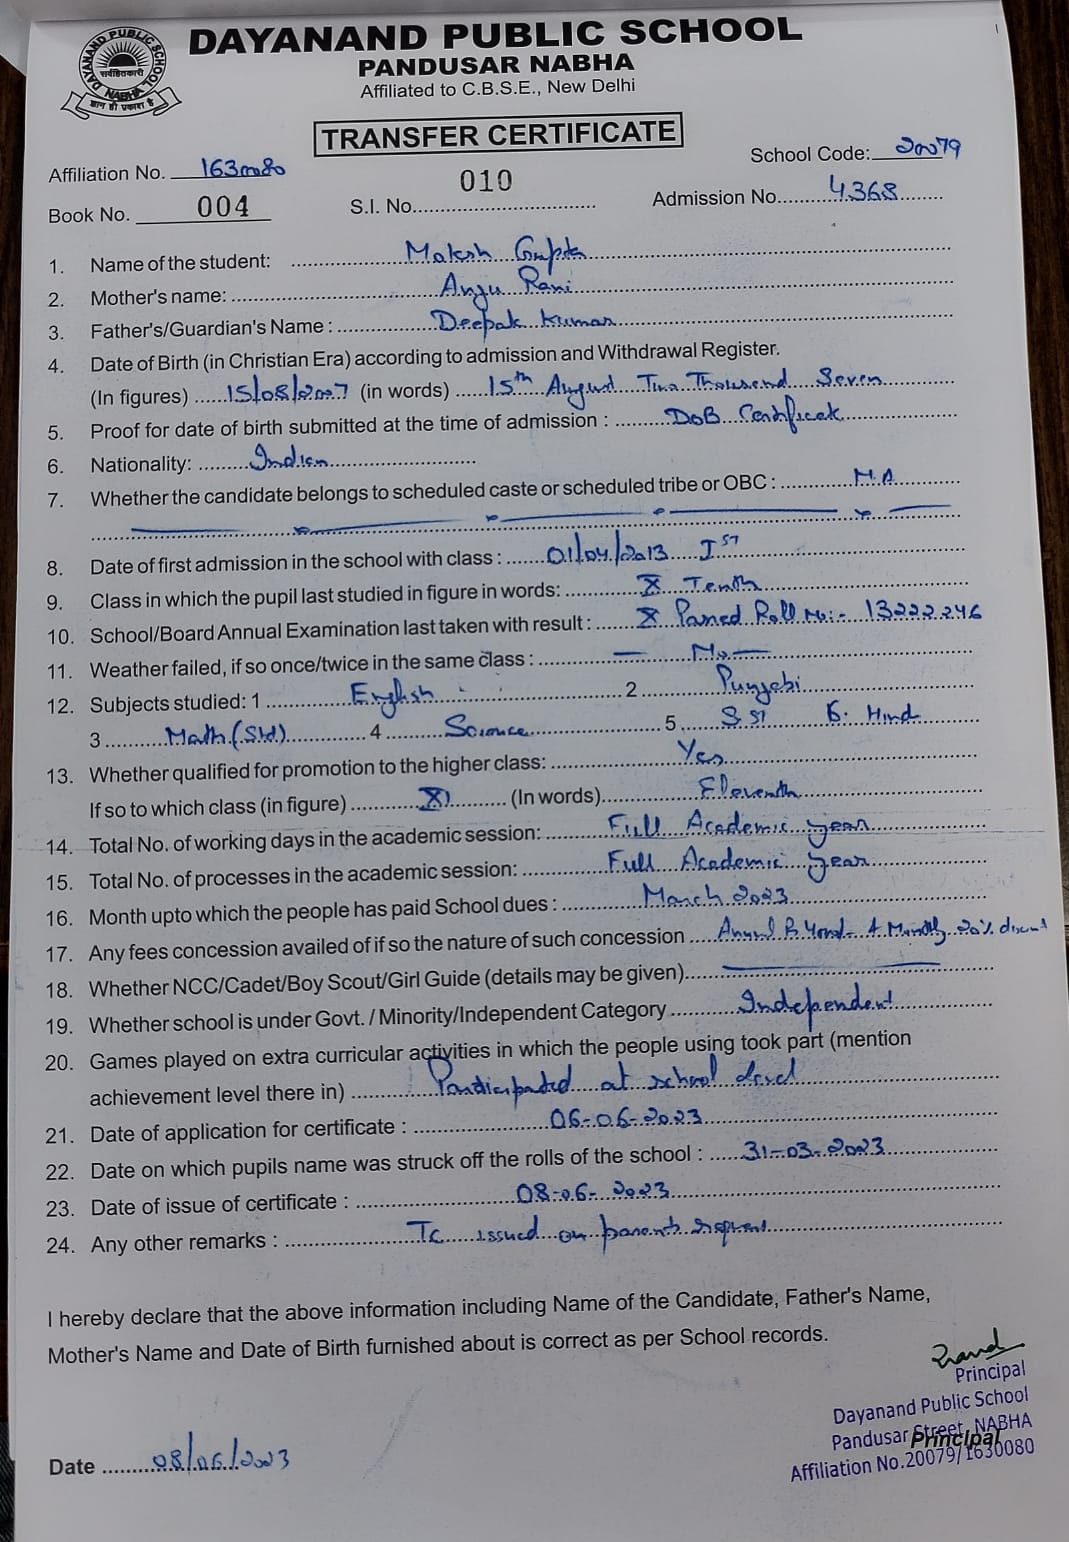 DAYANAND PUBLIC SCHOOL
PANDUSAR NABHA
Affiliated to C.B.S.E., New Delhi
DAYANAND PUBLIC SCHOOL
NABHA
ज्ञान ही प्रकाश है
TRANSFER CERTIFICATE
Affiliation No. 1630080
School Code: 20079
Book No. 004
S.I. No. 010
Admission No. 4368
1. Name of the student: Moksh Gupta
2. Mother's name: Anju Rani
3. Father's/Guardian's Name : Deepak Kumar
4. Date of Birth (in Christian Era) according to admission and Withdrawal Register.
(In figures) 15/08/2007 (in words) 15th August Two Thousand Seven
5. Proof for date of birth submitted at the time of admission : DoB Certificate
6. Nationality: Indian
7. Whether the candidate belongs to scheduled caste or scheduled tribe or OBC : N.A
8. Date of first admission in the school with class : 01/04/2013 Ist
9. Class in which the pupil last studied in figure in words: X Tenth
10. School/Board Annual Examination last taken with result : X Passed Roll No:- 13222246
11. Weather failed, if so once/twice in the same class : — No —
12. Subjects studied: 1 English 2 Punjabi
3 Math (Std) 4 Science 5 S.St 6. Hindi
13. Whether qualified for promotion to the higher class: Yes
If so to which class (in figure) XI (In words) Eleventh
14. Total No. of working days in the academic session: Full Academic year
15. Total No. of processes in the academic session: Full Academic year
16. Month upto which the people has paid School dues : March 2023
17. Any fees concession availed of if so the nature of such concession Annual & Monthly 20%
18. Whether NCC/Cadet/Boy Scout/Girl Guide (details may be given)
19. Whether school is under Govt. / Minority/Independent Category Independent
20. Games played on extra curricular activities in which the people using took part (mention
achievement level there in) Participated at school level
21. Date of application for certificate : 06-06-2023
22. Date on which pupils name was struck off the rolls of the school : 31-03-2023
23. Date of issue of certificate : 08-06-2023
24. Any other remarks : Tc issued on parents request
I hereby declare that the above information including Name of the Candidate, Father's Name,
Mother's Name and Date of Birth furnished about is correct as per School records.
Principal
Dayanand Public School
Pandusar Street, NABHA
Principal
Affiliation No.20079/1630080
Date 08/06/2023